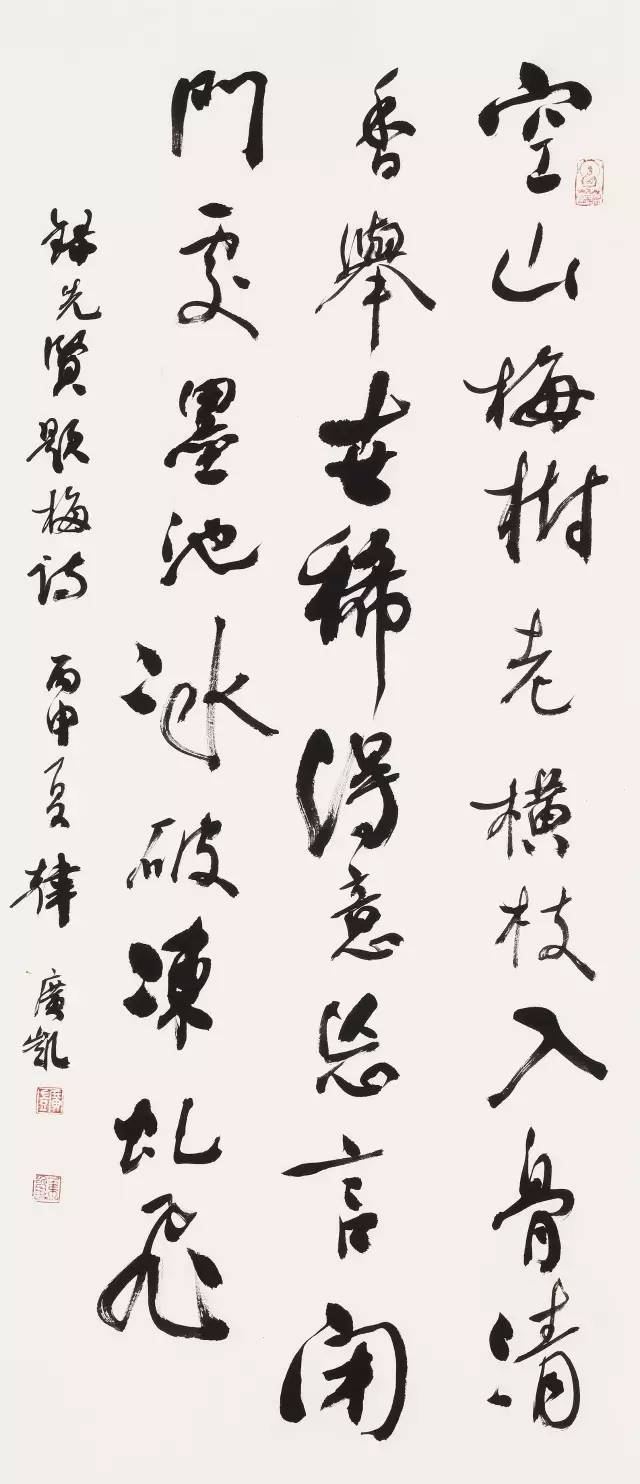 空山梅樹老橫枝入骨清
香舉世稀得意忘言閉
門處墨池冰破凍虬飛
錄先賢題梅詩 丙申夏 韓廣凱